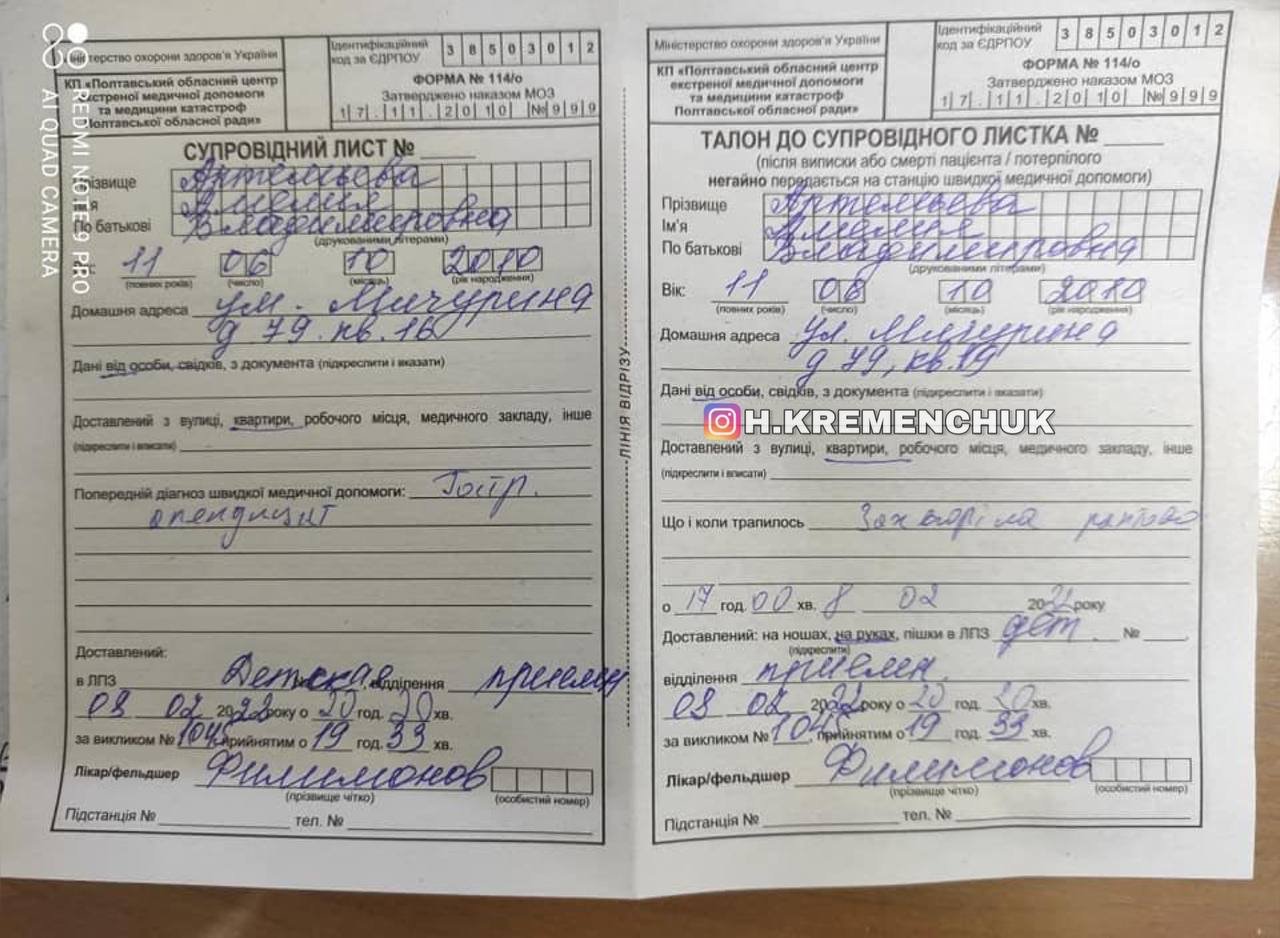 REDMI NOTE 9 PRO
AI QUAD CAMERA
Міністерство охорони здоров'я України
КП «Полтавський обласний центр
екстреної медичної допомоги
та медицини катастроф
Полтавської обласної ради»
Ідентифікаційний
код за ЄДРПОУ 38503012
ФОРМА № 114/о
Затверджено наказом МОЗ
17.11.2010 №999
СУПРОВІДНИЙ ЛИСТ №
Прізвище Артемьева
Амелия
По батькові Владимировна
(друкованими літерами)
11 06 10 2010
(повних років) (число) (місяць) (рік народження)
Домашня адреса ул. Мичурина
д 79. кв. 16
Дані від особи, свідків, з документа (підкреслити і вказати)
Доставлений з вулиці, квартири, робочого місця, медичного закладу, інше
(підкреслити і вписати)
Попередній діагноз швидкої медичної допомоги: Гостр.
апендицит
Доставлений:
в ЛПЗ Детская, відділення приемн
08 02 2022 року о 20 год. 20 хв.
за викликом № 1045, прийнятим о 19 год. 33 хв.
Лікар/фельдшер Филимонов
(прізвище чітко) (особистий номер)
Підстанція № тел. №
ЛІНІЯ ВІДРІЗУ
Міністерство охорони здоров'я України
КП «Полтавський обласний центр
екстреної медичної допомоги
та медицини катастроф
Полтавської обласної ради»
Ідентифікаційний
код за ЄДРПОУ 38503012
ФОРМА № 114/о
Затверджено наказом МОЗ
17.11.2010 №999
ТАЛОН ДО СУПРОВІДНОГО ЛИСТКА №
(після виписки або смерті пацієнта / потерпілого
негайно передається на станцію швидкої медичної допомоги)
Прізвище Артемьева
Ім'я Амелия
По батькові Владимировна
(друкованими літерами)
Вік: 11 06 10 2010
(повних років) (число) (місяць) (рік народження)
Домашня адреса Ул. Мичурина
д 79, кв. 19
Дані від особи, свідків, з документа (підкреслити і вказати)
H.KREMENCHUK
Доставлений з вулиці, квартири, робочого місця, медичного закладу, інше
(підкреслити і вписати)
Що і коли трапилось Захворіла раптово
о 17 год. 00 хв. 8 02 20 року
Доставлений: на ношах, на руках, пішки в ЛПЗ дет. №
(підкреслити)
відділення приемн.
08 02 2022 року о 20 год. 20 хв.
за викликом № 1045, прийнятим о 19 год. 33 хв.
Лікар/фельдшер Филимонов
(прізвище чітко) (особистий номер)
Підстанція № тел. №